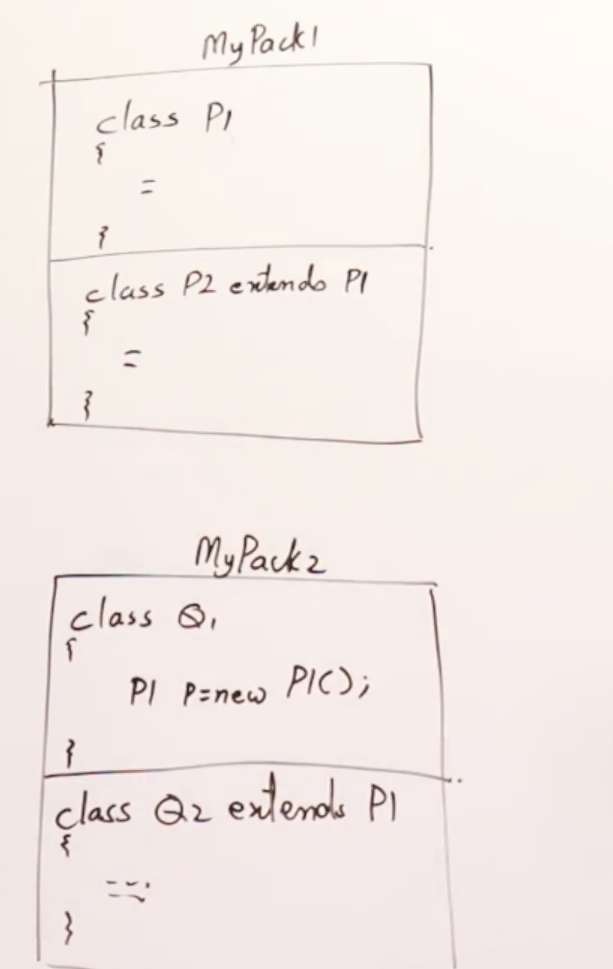 MyPack1
class P1
{
=
}
class P2 extends P1
{
=
}
MyPack2
class Q1
{
P1 p=new P1();
}
class Q2 extends P1
{
}